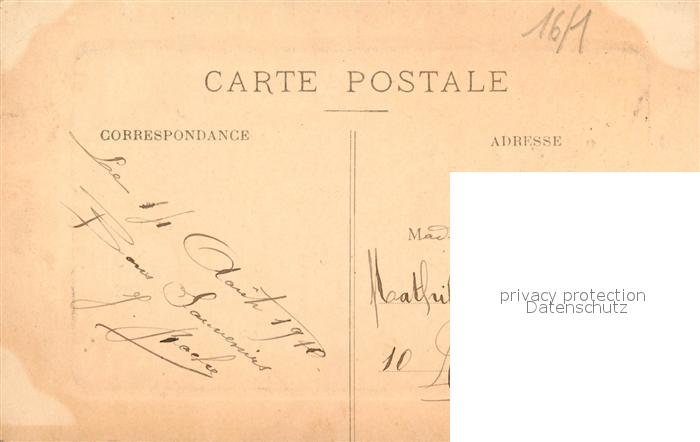 16/1
CARTE POSTALE
CORRESPONDANCE
ADRESSE
Le 1/1 Août 1910.
Bons Souvenirs
Mad
Mathil
10
privacy protection
Datenschutz